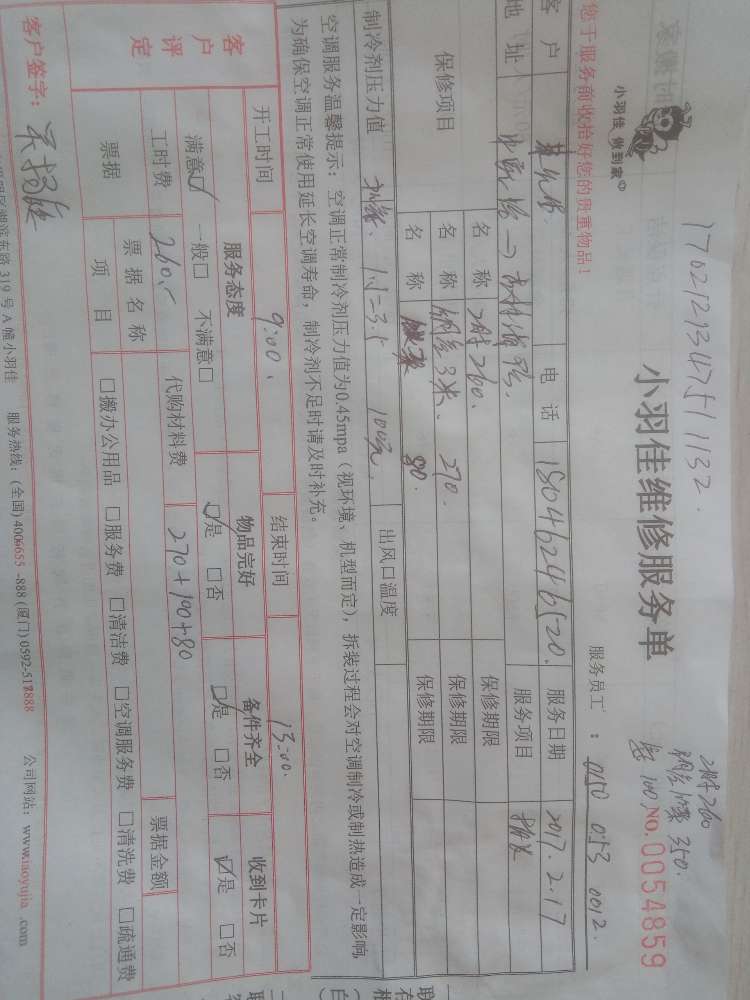 小羽佳 做到家
17021213475 11132.
小羽佳维修服务单
2时260
350.
100, No. 0054859
服务员工: 0150 053 0012.
您于服务前收拾好您的贵重物品!
客户
电话 18046246520.
服务日期 2017.2.17
地址
服务项目
保修项目
名称 2时260. 保修期限
名称 铜管3米. 270. 保修期限
名称 80. 保修期限
制冷剂压力值 100元, 出风口温度
空调服务温馨提示:空调正常制冷剂压力值为0.45mpa(视环境、机型而定),拆装过程会对空调制冷或制热造成一定影响,
为确保空调正常使用延长空调寿命,制冷剂不足时请及时补充。
开工时间 9:00. 结束时间 13:00.
客户评定
服务态度 物品完好 备件齐全 收到卡片
满意☑ 一般□ 不满意□ ☑是 □否 ☑是 □否 ☑是 □否
工时费 260.- 代购材料费 270+190+80
票据 票据名称 票据金额
项目 □搬办公用品 □服务费 □清洁费 □空调服务费 □清洗费 □疏通费
客户签字:
湖滨东路319号A幢小羽佳 服务热线:(全国)4006655-888(厦门)0592-5178888 公司网站:www.xiaoyujia.com